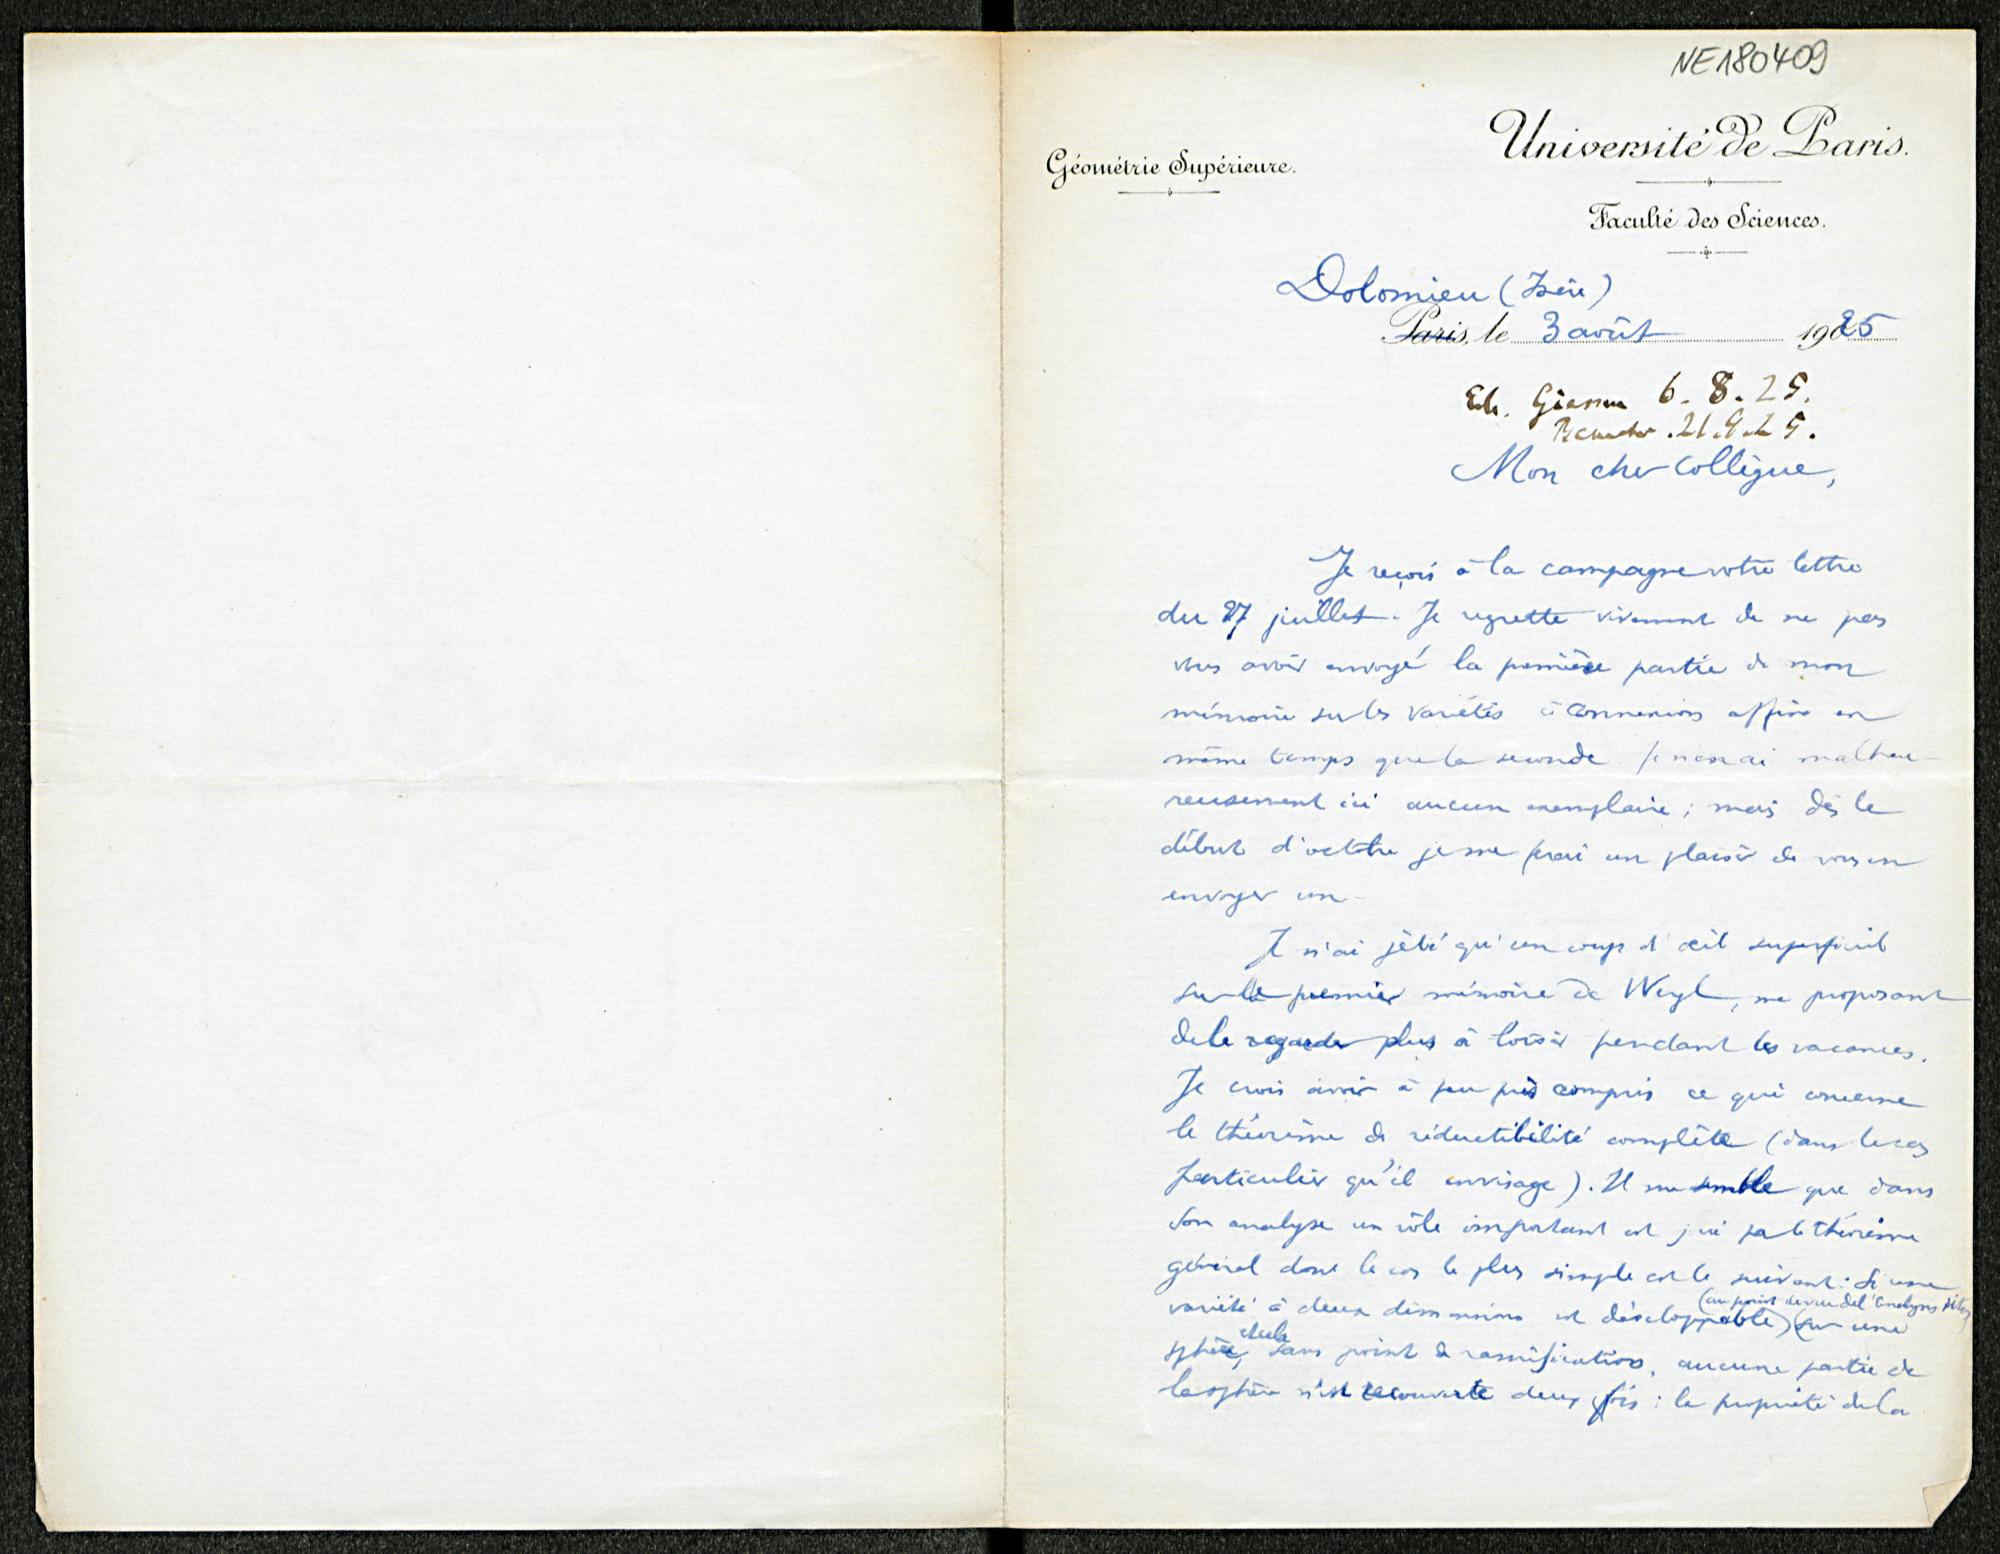 NE180409
Université de Paris.
Géométrie Supérieure.
Faculté des Sciences.
Dolomieu (Isère)
Paris, le 3 août 1925
Eh. Giessen 6.8.25.
21.9.25.
Mon cher Collègue,
Je reçois à la campagne votre lettre
du 27 juillet. Je regrette vivement de ne pas
vous avoir envoyé la première partie de mon
mémoire sur les variétés à connexion affine en
même temps que la seconde. Je n'en ai malheu-
reusement ici aucun exemplaire ; mais dès le
début d'octobre je me ferai un plaisir de vous en
envoyer un.
Je n'ai jeté qu'un coup d'œil superficiel
sur le premier mémoire de Weyl, me proposant
de le regarder plus à loisir pendant les vacances.
Je crois avoir à peu près compris ce qui concerne
le théorème de réductibilité complète (dans le cas
particulier qu'il envisage). Il me semble que dans
son analyse un rôle important est joué par le théorème
général dont le cas le plus simple est le suivant : Si une
(au point de vue de l'Analysis situs)
variété à deux dimensions est développable sur une
sphère, et cela sans point de ramification, aucune partie de
la sphère n'est recouverte deux fois : la propriété de la